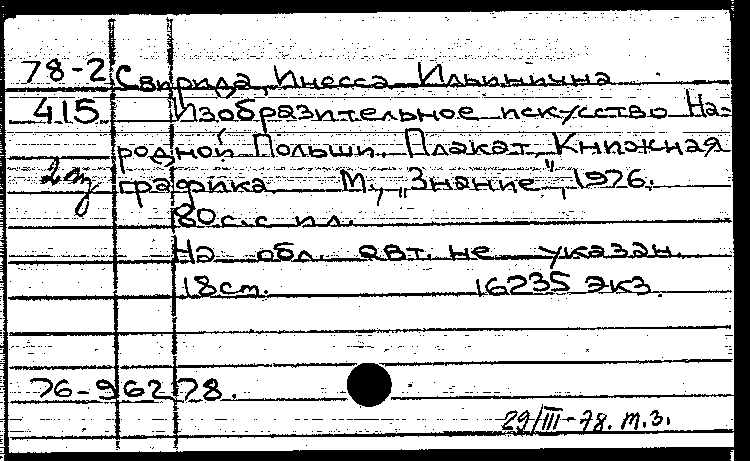 78-2 Свирида, Инесса Ильинична
415 Изобразительное искусство На-
родной Польши. Плакат, Книжная
2 экз графика М., „Знание", 1976.
80 с. с ил.
На обл. авт. не указан.
18 см. 16235 экз.
76-96278.
29/III-78. т.з.